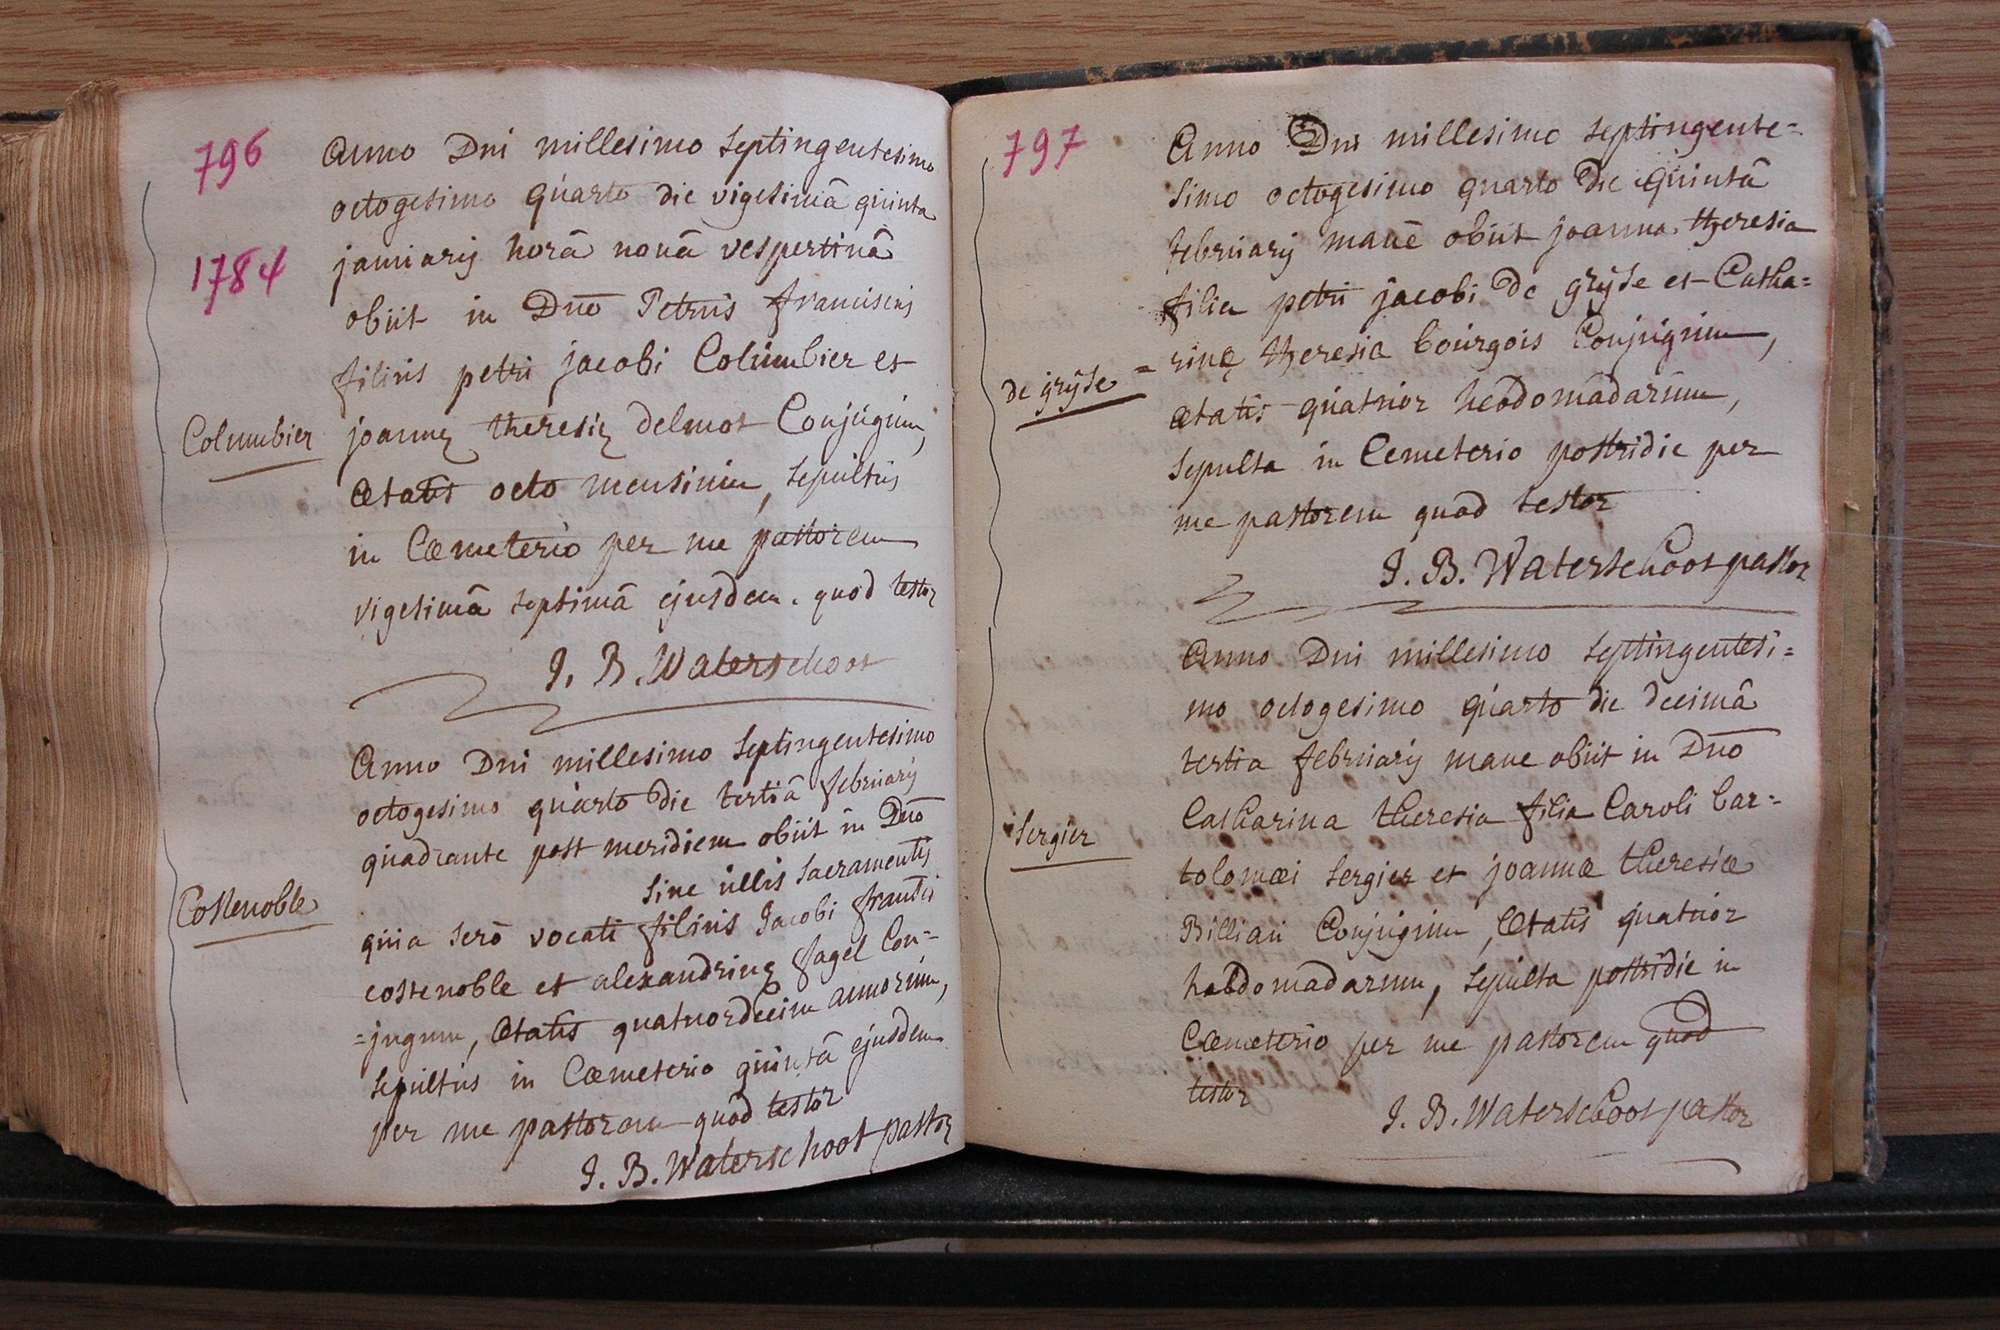 796
1784
Anno Dni millesimo septingentesimo
octogesimo quarto die vigesimâ quinta
januarij horâ nonâ vespertinâ
obiit in Dno Petrus franciscus
filius petri jacobi Columbier et
Columbier
joannę theresię delmot Conjugum,
ætatis octo mensium, sepultus
in Cœmeterio per me pastorem
vigesimâ septimâ ejusdem. quod testor
J. B. Waterschoot
Anno Dni millesimo septingentesimo
octogesimo quarto die tertiâ februarij
quadrante post meridiem obiit in Dno
sine ullis sacramentis
Costenoble
quia serò vocati filius Jacobi
costenoble et alexandrinę fagel Con=
=jugum, ætatis quatuordecim annorum,
sepultus in Cœmeterio quintâ ejusdem
per me pastorem quod testor
J. B. Waterschoot pastor
797
Anno Dni millesimo septingente=
simo octogesimo quarto die quintâ
februarij manè obiit joanna theresia
filia petri jacobi de grÿse et Catha=
de grÿse =
rinę theresia bourgois Conjugum,
ætatis quatuor hebdomadarum,
sepulta in Cemeterio postridie per
me pastorem quod testor
J. B. Waterschoot pastor
Anno Dni millesimo septingentesi=
mo octogesimo quarto die decimâ
tertia februarij mane obiit in Dno
Catharina theresia filia Caroli bar=
sergier
tolomæi sergier et joannæ theresiæ
Billiau Conjugum, Ætatis quatuor
hebdomadarum, sepulta postridie in
Cœmeterio per me pastorem quod
testor
J. B. Waterschoot pastor